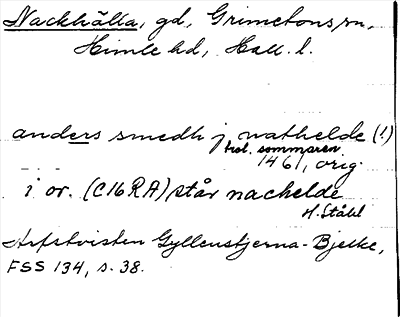 Nackhälla, gd, Grimetons sn,
Himle hd, Hall. l.
anders smedh j nathelde (!)
trol. sommaren
1461, orig.
i or. (C16RA) står nachelde
H. Ståhl
Arfstvisten Gyllenstjerna-Bjelke,
FSS 134, s. 38.